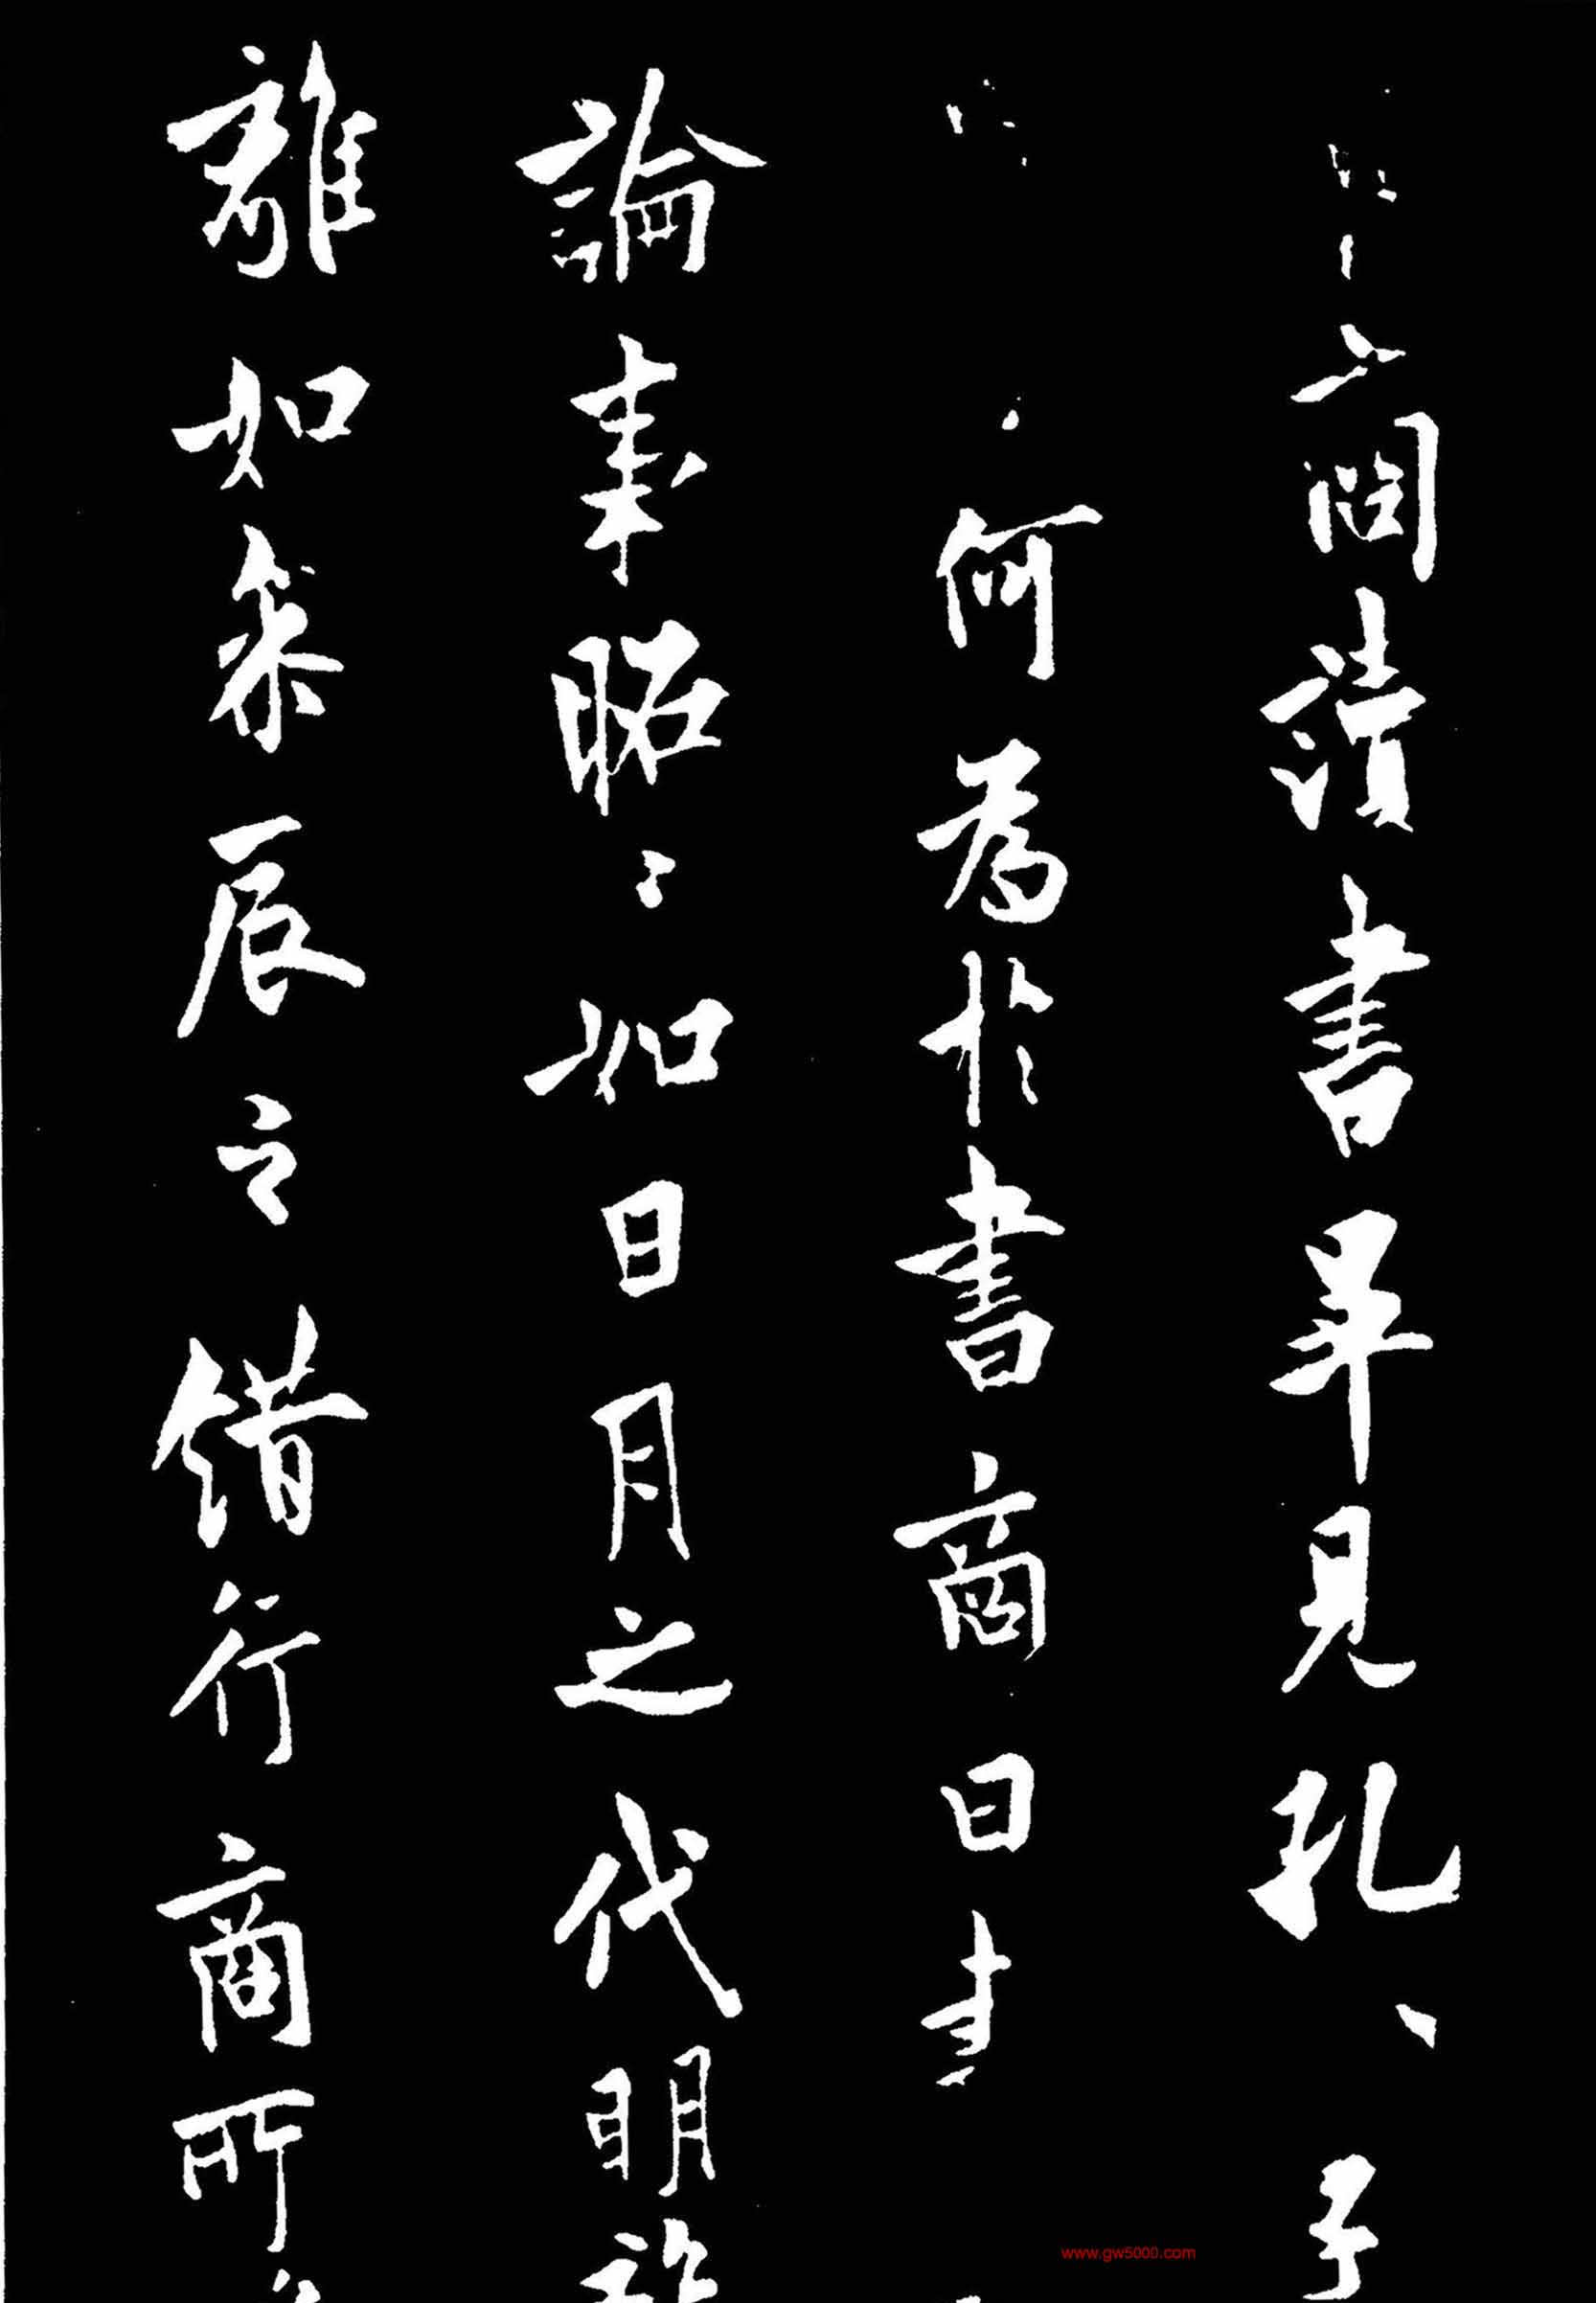 商讀書畢見孔、子
何為於書商曰書
論事昭〻如日月之代明
離如參辰之錯行商所
www.gw5000.com